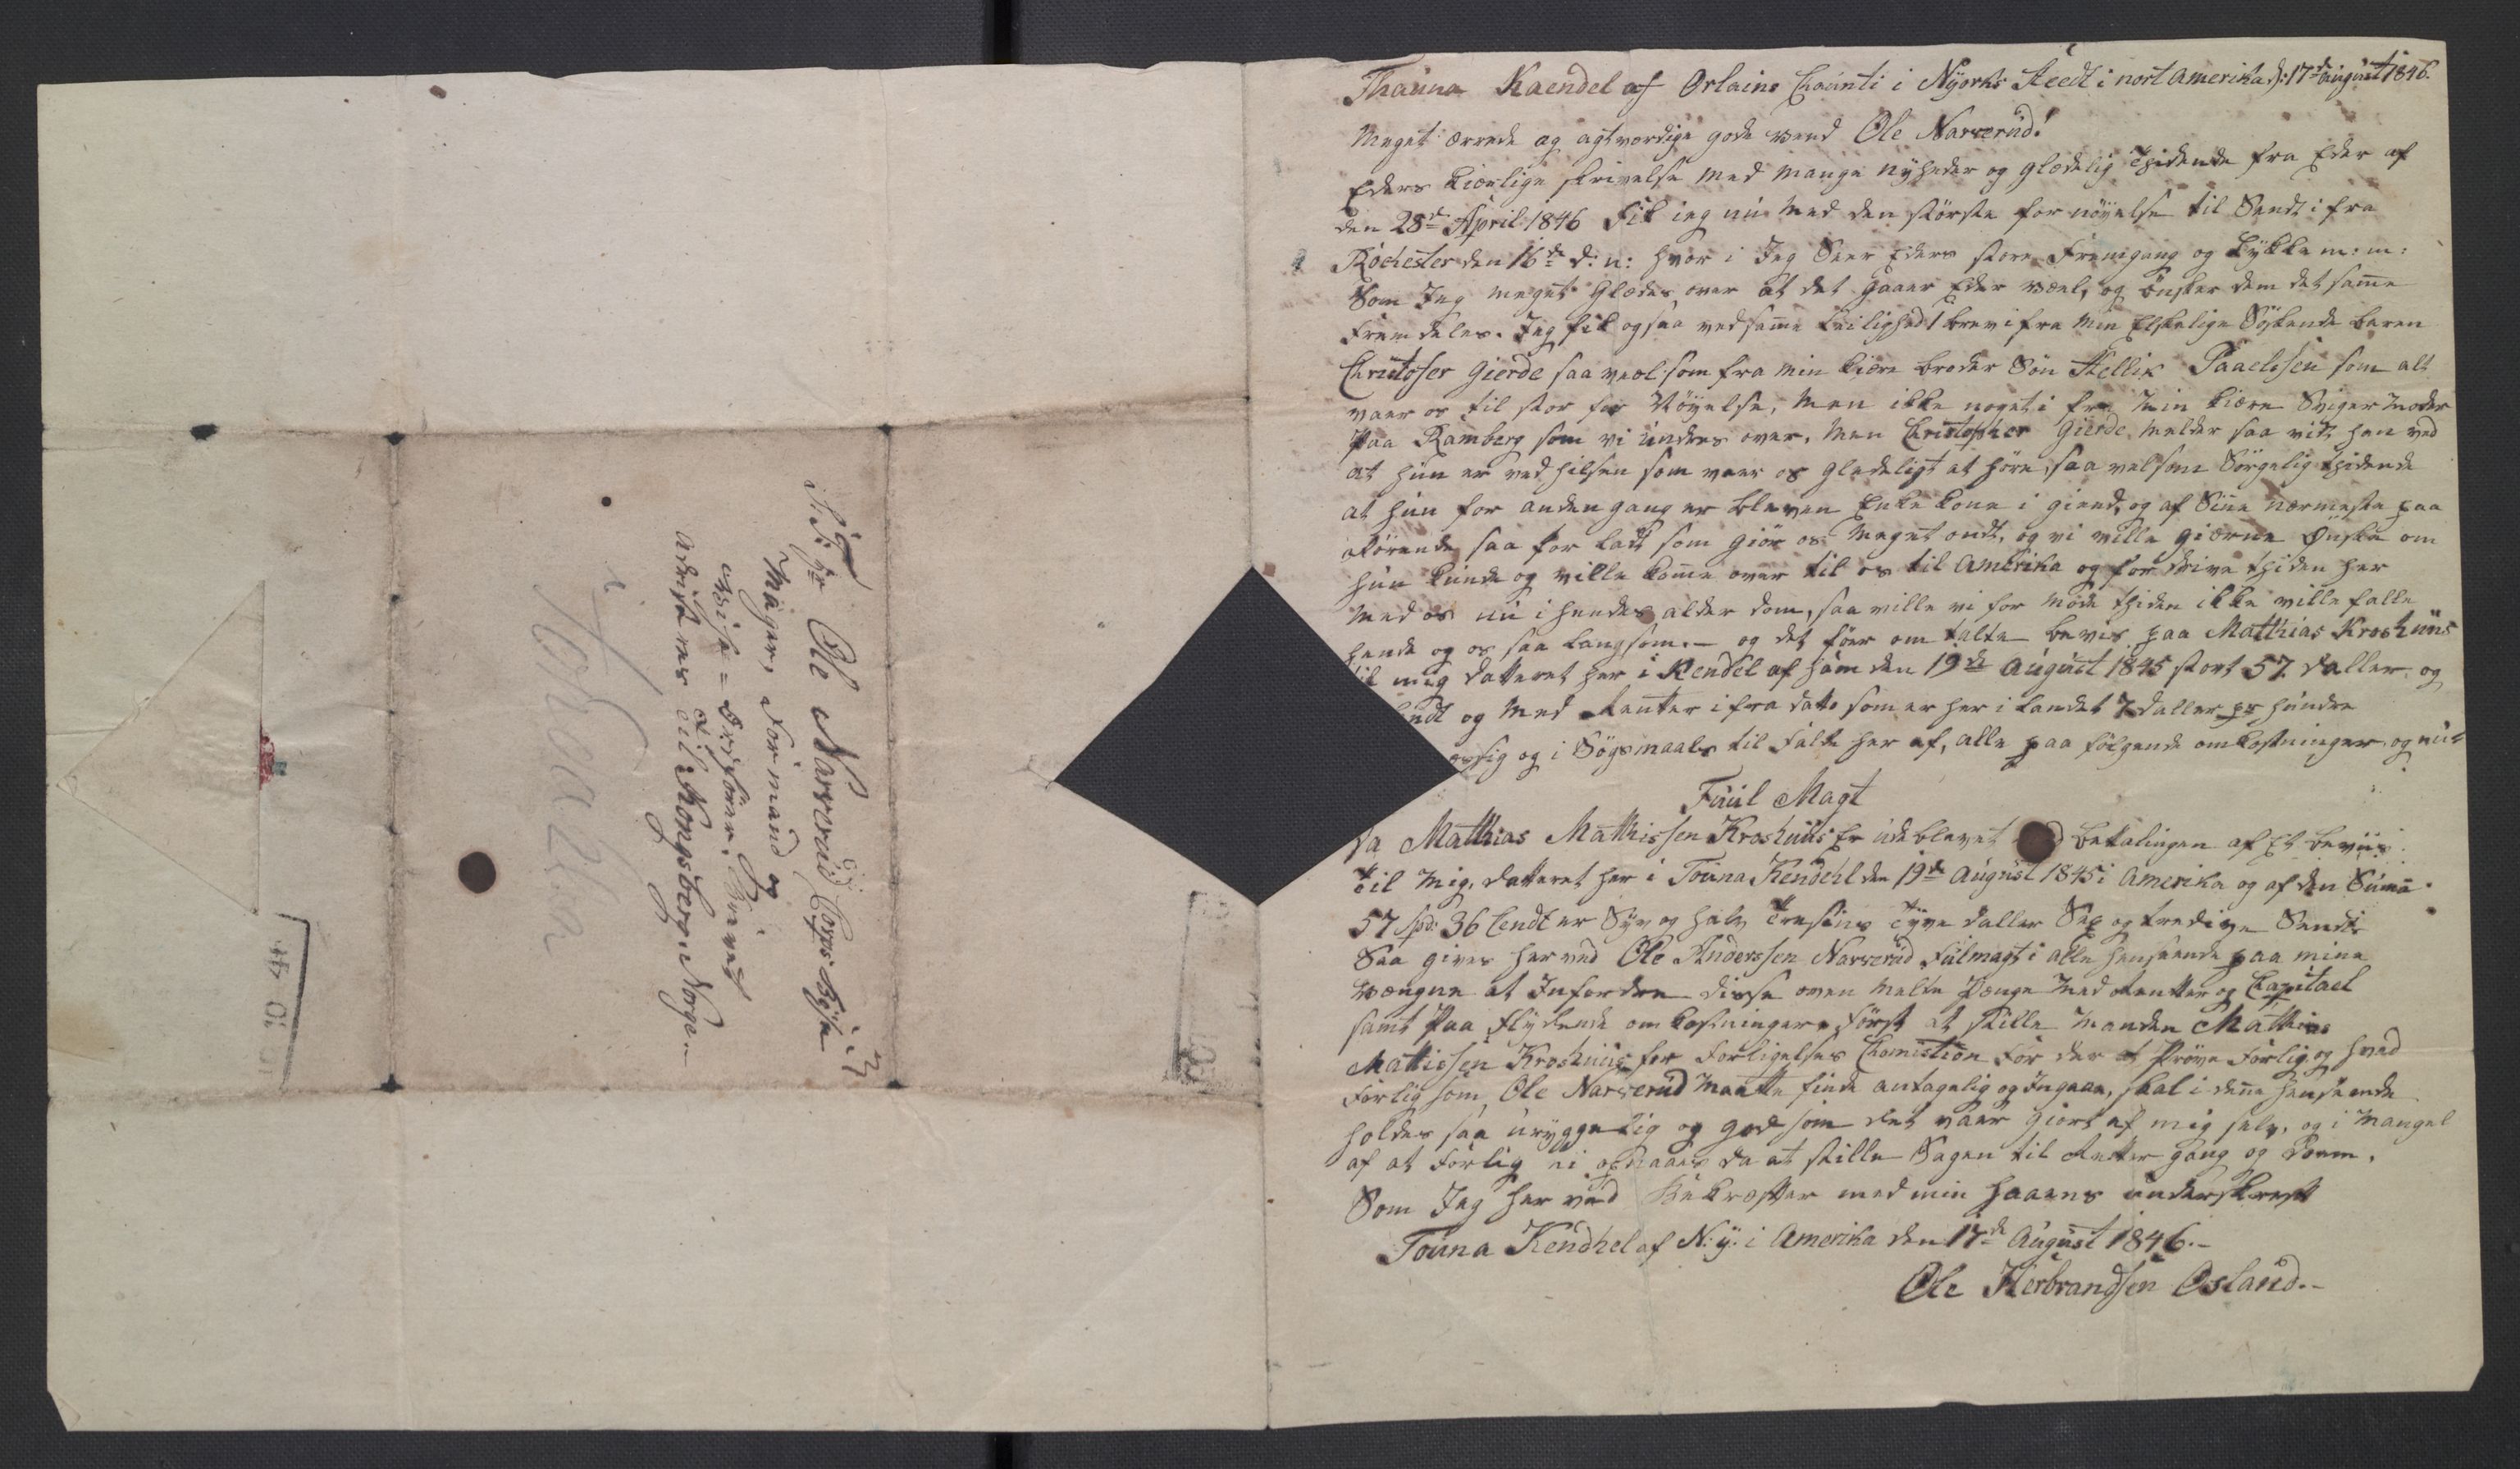 Thauna Kaendel af Orlains Chaunti i Nÿorks Steedt i nort Amerika d: 17de August 1846.
Meget ærrede og agtværdige gode vend Ole Narverud!
Eders kiærlige skrivelse med mange nÿheder og glædelig Thidende fra Eder af
den 28de April 1846 Fik ieg nu med den störste for nöÿelse til Sendt i fra
Rochester den 16de d: n: hvor i Jeg Seer Eders store Fremgang og Lÿkke m: m:
Som Jeg meget Glædes over at det gaaer Eder væel, og önsker dem det same
Fremdeles. Jeg fik ogsaa ved same Leilighed 1 brev ifra min Elskelige Söskende baren
Christofer Gierde saa veol som fra min kiære broder Sön Hellik Paaelsen som alt
vaar os til stor for Nöÿelse, Men ikke noget i fra Min kiære Sviger moder
Paa Ramberg som vi undres over. Men Christopher Gierde melder saa vit han ved
at hun er ved hilsen som vaar os gledeligt at höre, saa vel som Sörgelig thidende
at hun for anden gang er bleven Enke kone i giend, og af Sine nærmeste paa
rörende saa for ladt som giör os Meget ondt, og vi ville giærne Önske om
hun kunde og ville kome over til os til Amerika og for drive thiden her
Med os nu i hendes alder dom, saa ville vi for mode thiden ikke ville falle
hende og os saa langsom. – og det föer om talte bevis paa Matthias Kroshuus
til mig datteret her i Kendel af ham den 19de August 1845 stort 57 daller og
endt og Med Renter ifra dato som er her i Landet 7 daller pr hundre
og i Sögsmaals til fælde her af, alle paa fölgende omkostninger og
Fuul Magt
da Matthias Mathissen Kroshuus Er ude blevet betalingen af Et beviis
til Mig, datteret her i Touna Kendehl den 19de August 1845 i Amerika og af den Suma
57 Spd: 36 Cendt er Sÿv og halv Tresins Tÿve daller Sex og tredive Sendt
Saa gives her ved Ole Anderssen Narverud Fulmagt i alle henseende paa mine
vægne at Infordre disse oven melte Penge Med Rentter og Capitael
samt Paa flÿdende om kostninger. först at stille Manden Mathias
Mattissen Kroshuus for Forligelses Chomistion for der at Pröve Forlig, og hvad
Forlig som, Ole Narverud Maatte finde antagelig og Ingaae, skal i dene henseende
holdes saa urÿggelig og god som det vaar giort af mig selv, og i Mangel
af at Forlig ei opnaaes da at stille Sagen til Retter gang og Doem.
Som Jeg her ved Bekræfter med min haaens underskreft
Touna Kendhel af N: ÿ: i Amerika den 17de August 1846. –
Ole Herbrandsen Osland. –
S: T: Hr Ole Narverud
Mÿger, Formand og
adriseres til Kongsberg i Norge. –